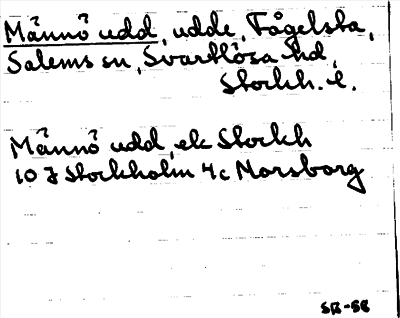 Männö udd, udde, Fågelsta,
Salems sn, Svartlösa hd,
Stockh. l.
Männö udd, ek Stockh
10 I Stockholm 4c Marsborg
SB-58